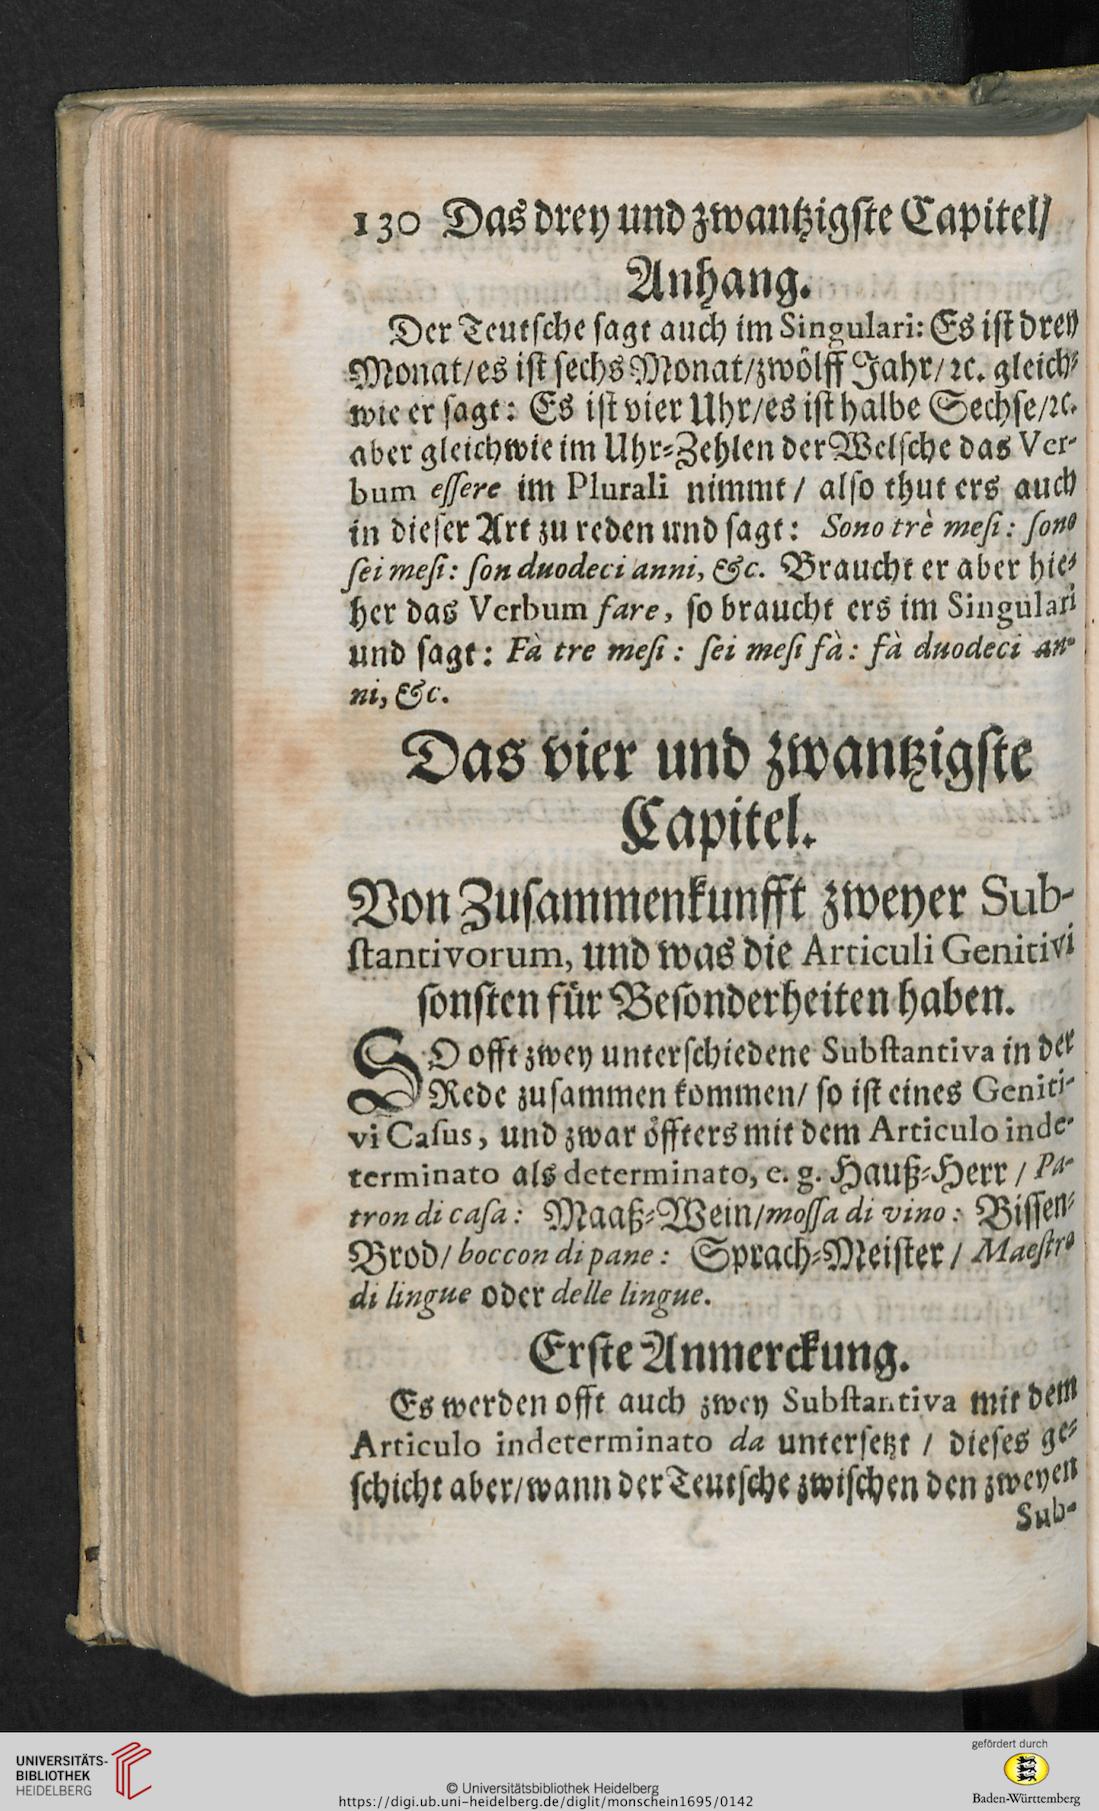 130 Das drey und zwantzigste Capitel/
Anhang.
Der Teutsche sagt auch im Singulari: Es ist drey
Monat/es ist sechs Monat/zwölff Jahr/ ꝛc. gleich⸗
wie er sagt: Es ist vier Uhr/es ist halbe Sechse/ꝛc.
aber gleichwie im Uhr⸗Zehlen der Welsche das Ver-
bum eſſere im Plurali nimmt / also thut ers auch
in dieser Art zu reden und sagt: Sono trè meſi: ſono
ſei meſi: ſon duodeci anni, &c. Braucht er aber hie⸗
her das Verbum fare, so braucht ers im Singulari
und sagt: Fà tre meſi: ſei meſi fà: fà duodeci an-
ni, &c.
Das vier und zwantzigste
Capitel.
Von Zusammenkunfft zweyer Sub-
ſtantivorum, und was die Articuli Genitivi
sonsten für Besonderheiten haben.
SO offt zwey unterschiedene Subſtantiva in der
Rede zusammen kommen/ so ist eines Geniti-
vi Caſus, und zwar öffters mit dem Articulo inde-
terminato als determinato, e. g. Hauß⸗Herr / Pa-
tron di caſa: Maaß⸗Wein/moſſa di vino: Bissen⸗
Brod/ boccon di pane: Sprach⸗Meister / Maeſtro
di lingue oder delle lingue.
Erste Anmerckung.
Es werden offt auch zwey Subſtantiva mit dem
Articulo indeterminato da untersetzt / dieses ge⸗
schicht aber/wann der Teutsche zwischen den zweyen
Sub-
UNIVERSITÄTS-
BIBLIOTHEK
HEIDELBERG
© Universitätsbibliothek Heidelberg
https://digi.ub.uni-heidelberg.de/diglit/monschein1695/0142
gefördert durch
Baden-Württemberg